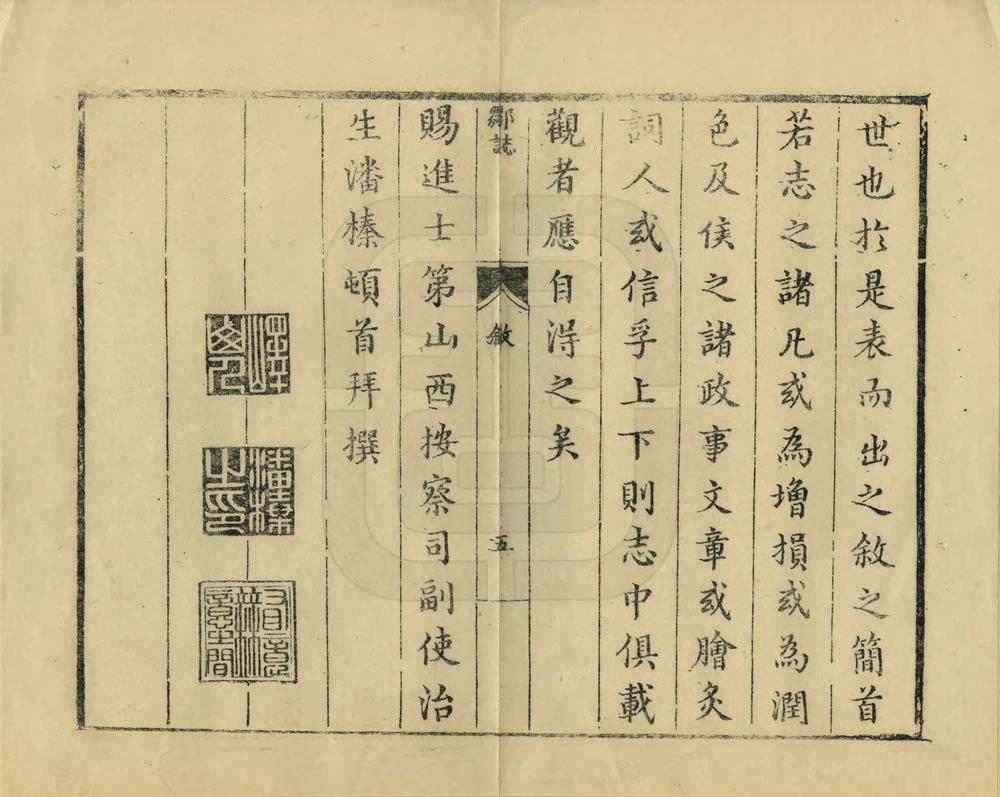 世也於是表而出之敘之簡首
若志之諸凡或為增損或為潤
色及侯之諸政事文章或膾炙
詞人或信孚上下則志中俱載
觀者應自淂之矣
鄒誌
敘
五
賜進士第山西按察司副使治
生潘榛頓首拜撰
潘榛之印